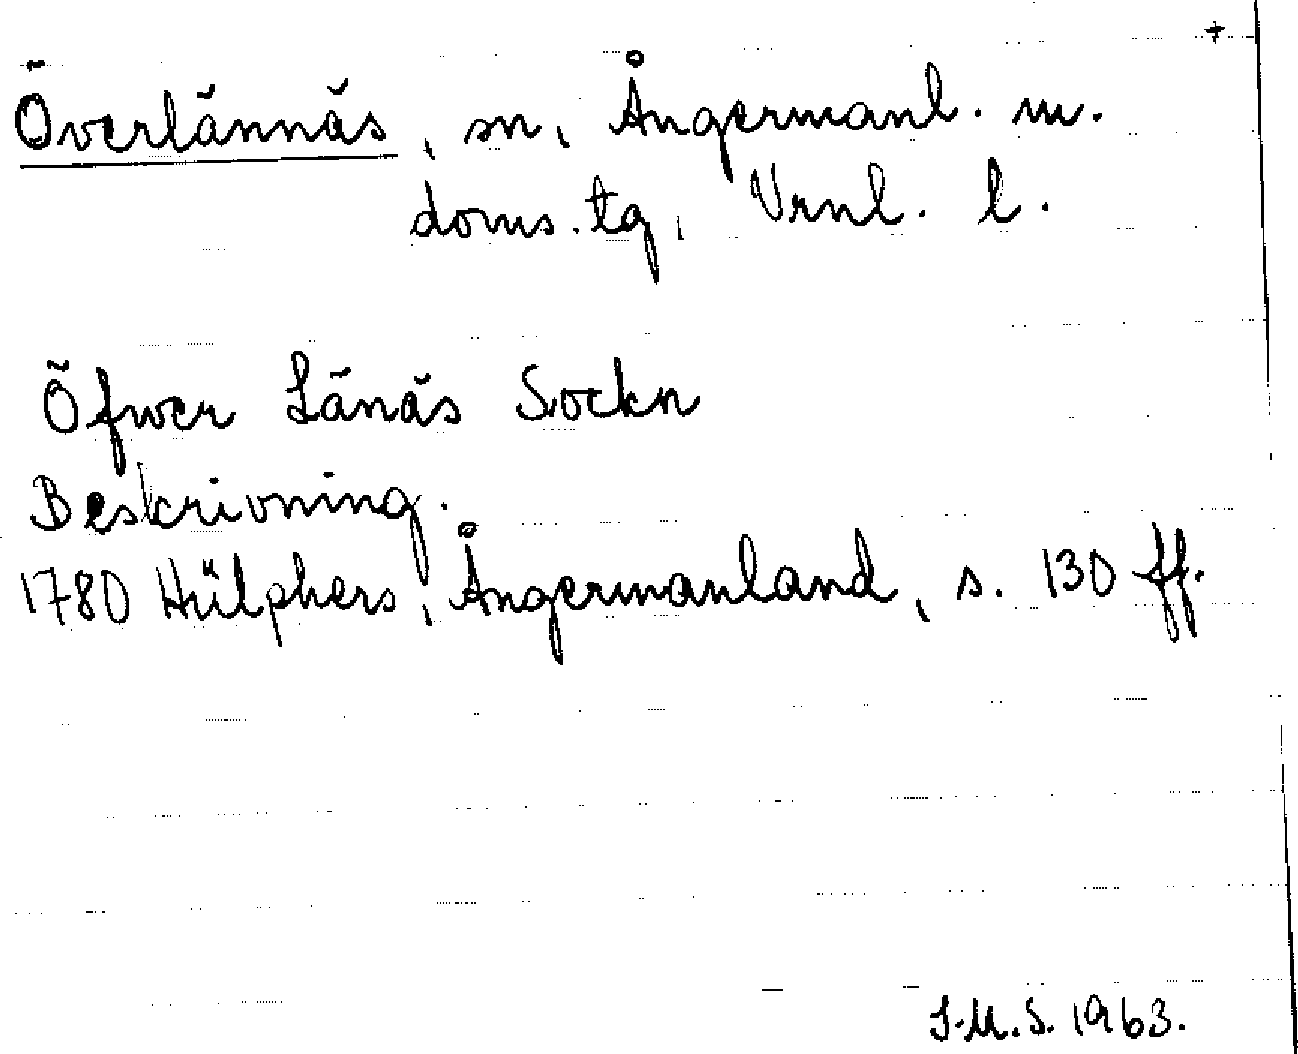 +
Överlännäs, sn, Ångermanl. m.
doms.tg, Vrnl. l.
Öfwer Länäs Sockn
Beskrivning.
1780 Hülphers, Ångermanland, s. 130 ff.
J.M.S. 1963.